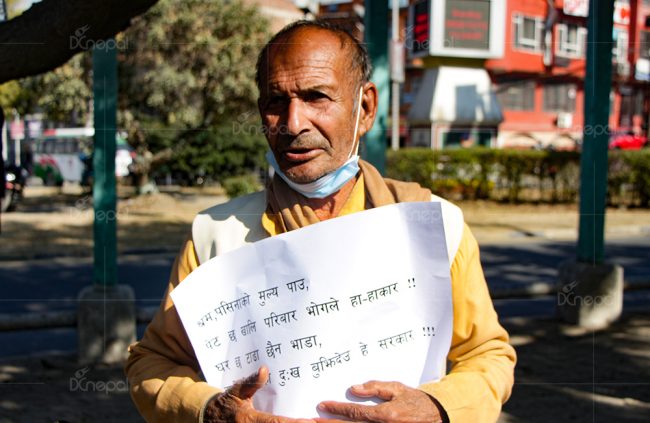 श्रम,पसिनाको मुल्य पाउ,
पेट छ खालि परिवार भोगले हा-हाकार !!
घर छ टाडा छैन भाडा,
दु:ख बुझिदेउ हे सरकार !!!
DCnepal